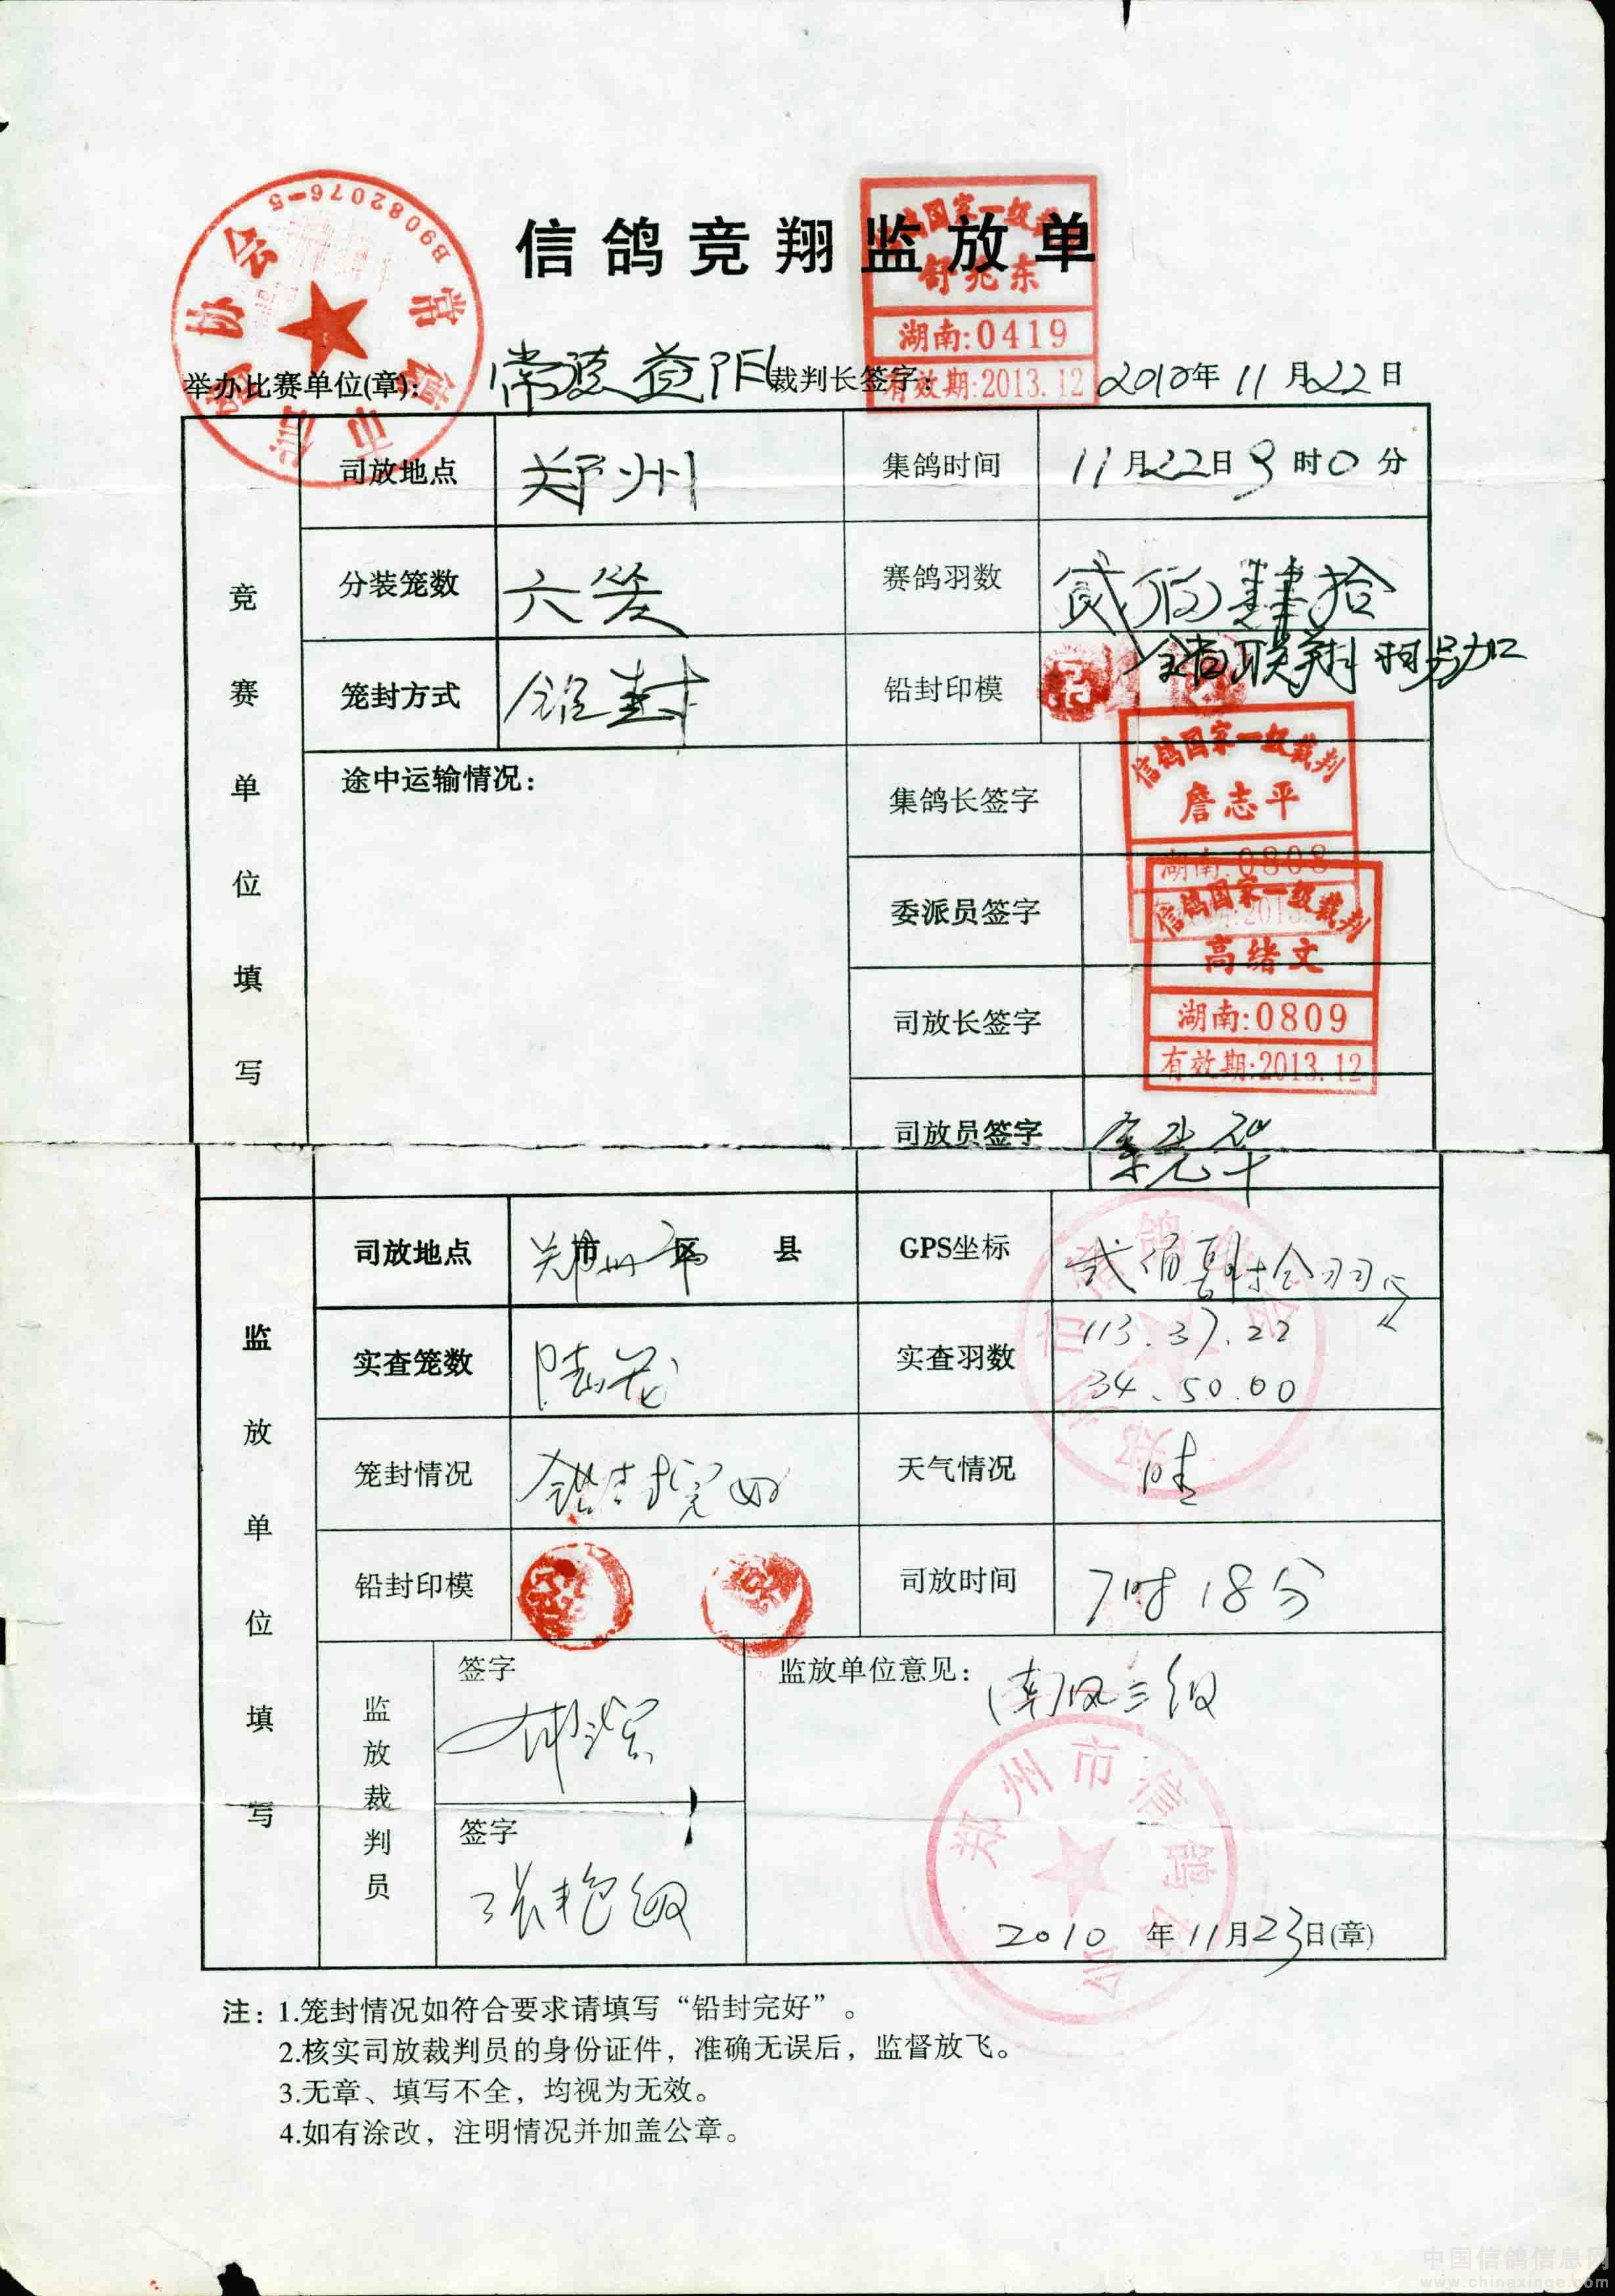 信鸽竞翔监放单
B90082076-5
常德市信鸽协会
信鸽国家一级裁判
舒兆东
湖南:0419
有效期:2013.12
举办比赛单位(章): 常德益阳 裁判长签字: 2010年11月22日
竞赛单位填写
司放地点 郑州 集鸽时间 11月22日9时0分
分装笼数 六笼 赛鸽羽数 贰佰肆拾
笼封方式 铅封 铅封印模
途中运输情况: 集鸽长签字
信鸽国家一级裁判
詹志平
湖南:0808
委派员签字
信鸽国家一级裁判
高绪文
司放长签字
湖南:0809
有效期:2013.12
司放员签字
监放单位填写
司放地点 郑州市 区 县 GPS坐标 贰佰肆拾羽
实查笼数 陆笼 实查羽数 113.37.22
34.50.00
笼封情况 铅封完好 天气情况 晴
铅封印模 司放时间 7时18分
监放裁判员
签字
监放单位意见: 南风三级
签字
郑州市信鸽协会
2010年11月23日(章)
注: 1.笼封情况如符合要求请填写“铅封完好”。
2.核实司放裁判员的身份证件，准确无误后，监督放飞。
3.无章、填写不全，均视为无效。
4.如有涂改，注明情况并加盖公章。
中国信鸽信息网
www.chinaxinge.com